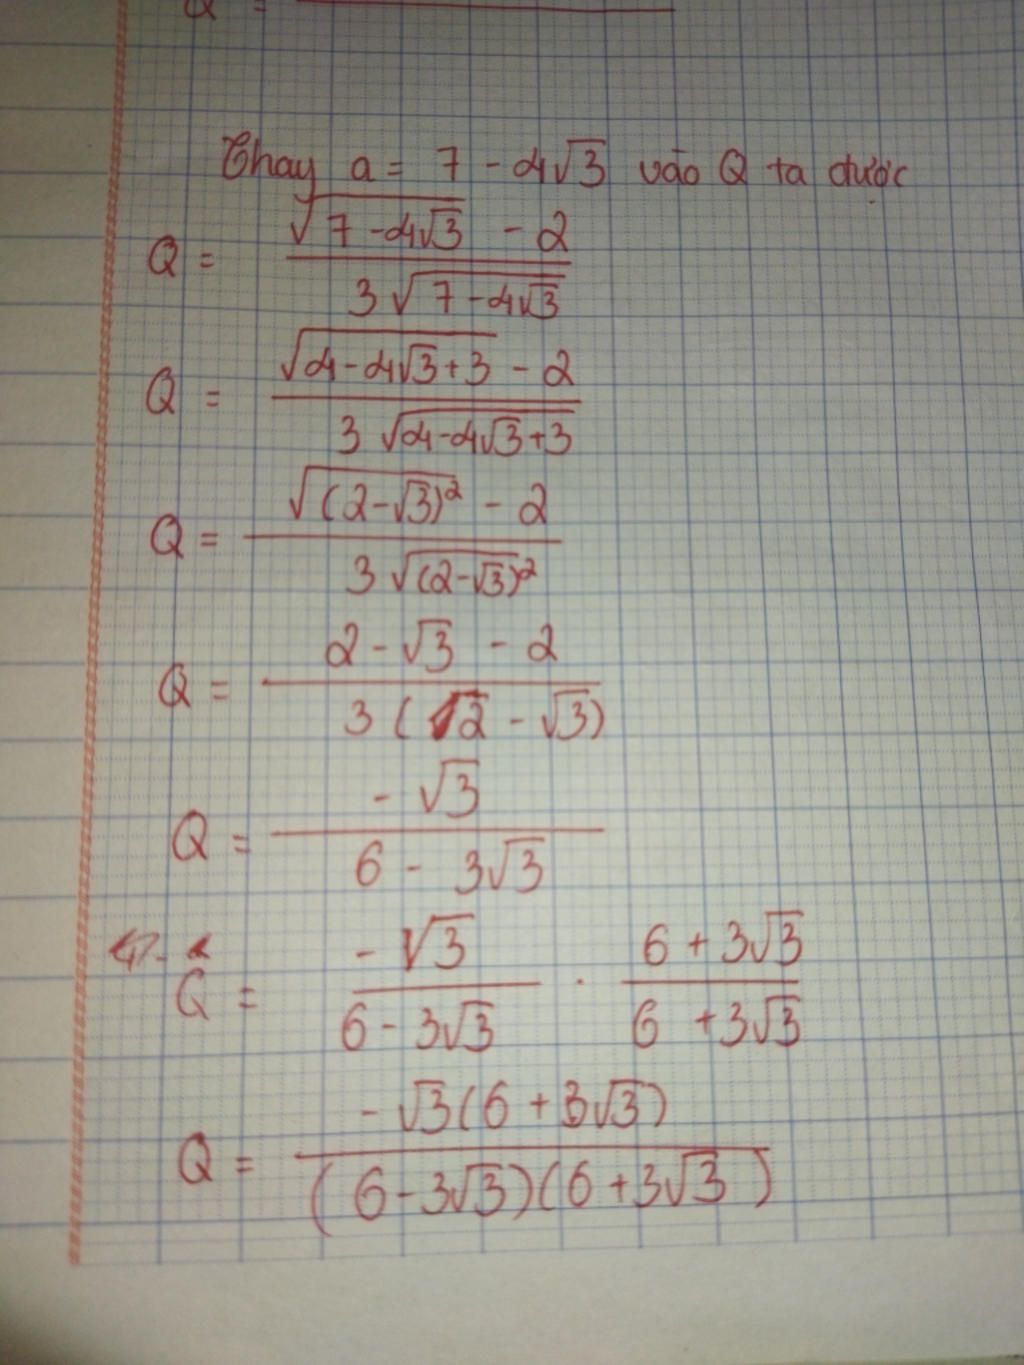 Q =
Thay a = 7 - 4√3 vào Q ta được
Q = (√(7 - 4√3) - 2) / (3√(7 - 4√3))
Q = (√(4 - 4√3 + 3) - 2) / (3√(4 - 4√3 + 3))
Q = (√((2 - √3)²) - 2) / (3√((2 - √3)²))
Q = (2 - √3 - 2) / (3(2 - √3))
Q = (- √3) / (6 - 3√3)
Q = (- √3) / (6 - 3√3) · (6 + 3√3) / (6 + 3√3)
Q = (- √3(6 + 3√3)) / ((6 - 3√3)(6 + 3√3))